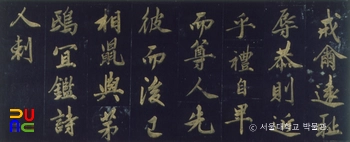 戒爾遠耻
辱恭則近
乎禮自卑
而尊人先
彼而後己
相鼠與茅
鴟冝鑑詩
人刺
© 서울대학교 박물관